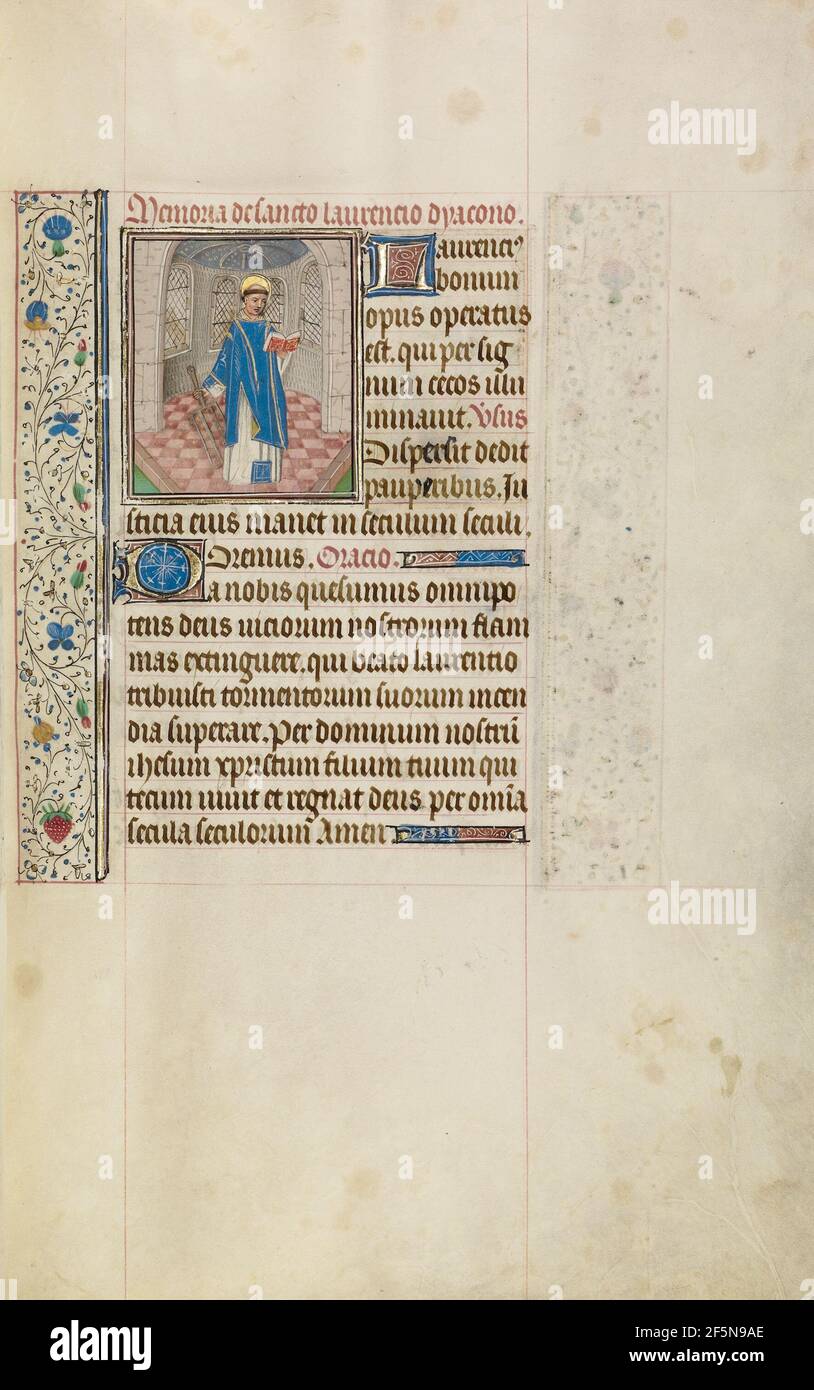 Memoria de sancto laurencio dyacono.
Laurenci⁹
bonum
opus operatus
est. qui per sig
num cecos illu
minauit. Vsus
Dispersit dedit
pauperibus. Iu
sticia eius manet in seculum seculi.
Oremus. Oracio.
Da nobis quesumus omnipo
tens deus uiciorum nostrorum flam
mas extinguere. qui beato laurentio
tribuisti tormentorum suorum incen
dia superare. Per dominum nostrū
ihesum xpristum filium tuum qui
tecum uiuit et regnat deus per om̄ia
secula seculorum Amen
alamy
alamy
alamy
alamy
alamy
alamy
Image ID: 2F5N9AE
www.alamy.com